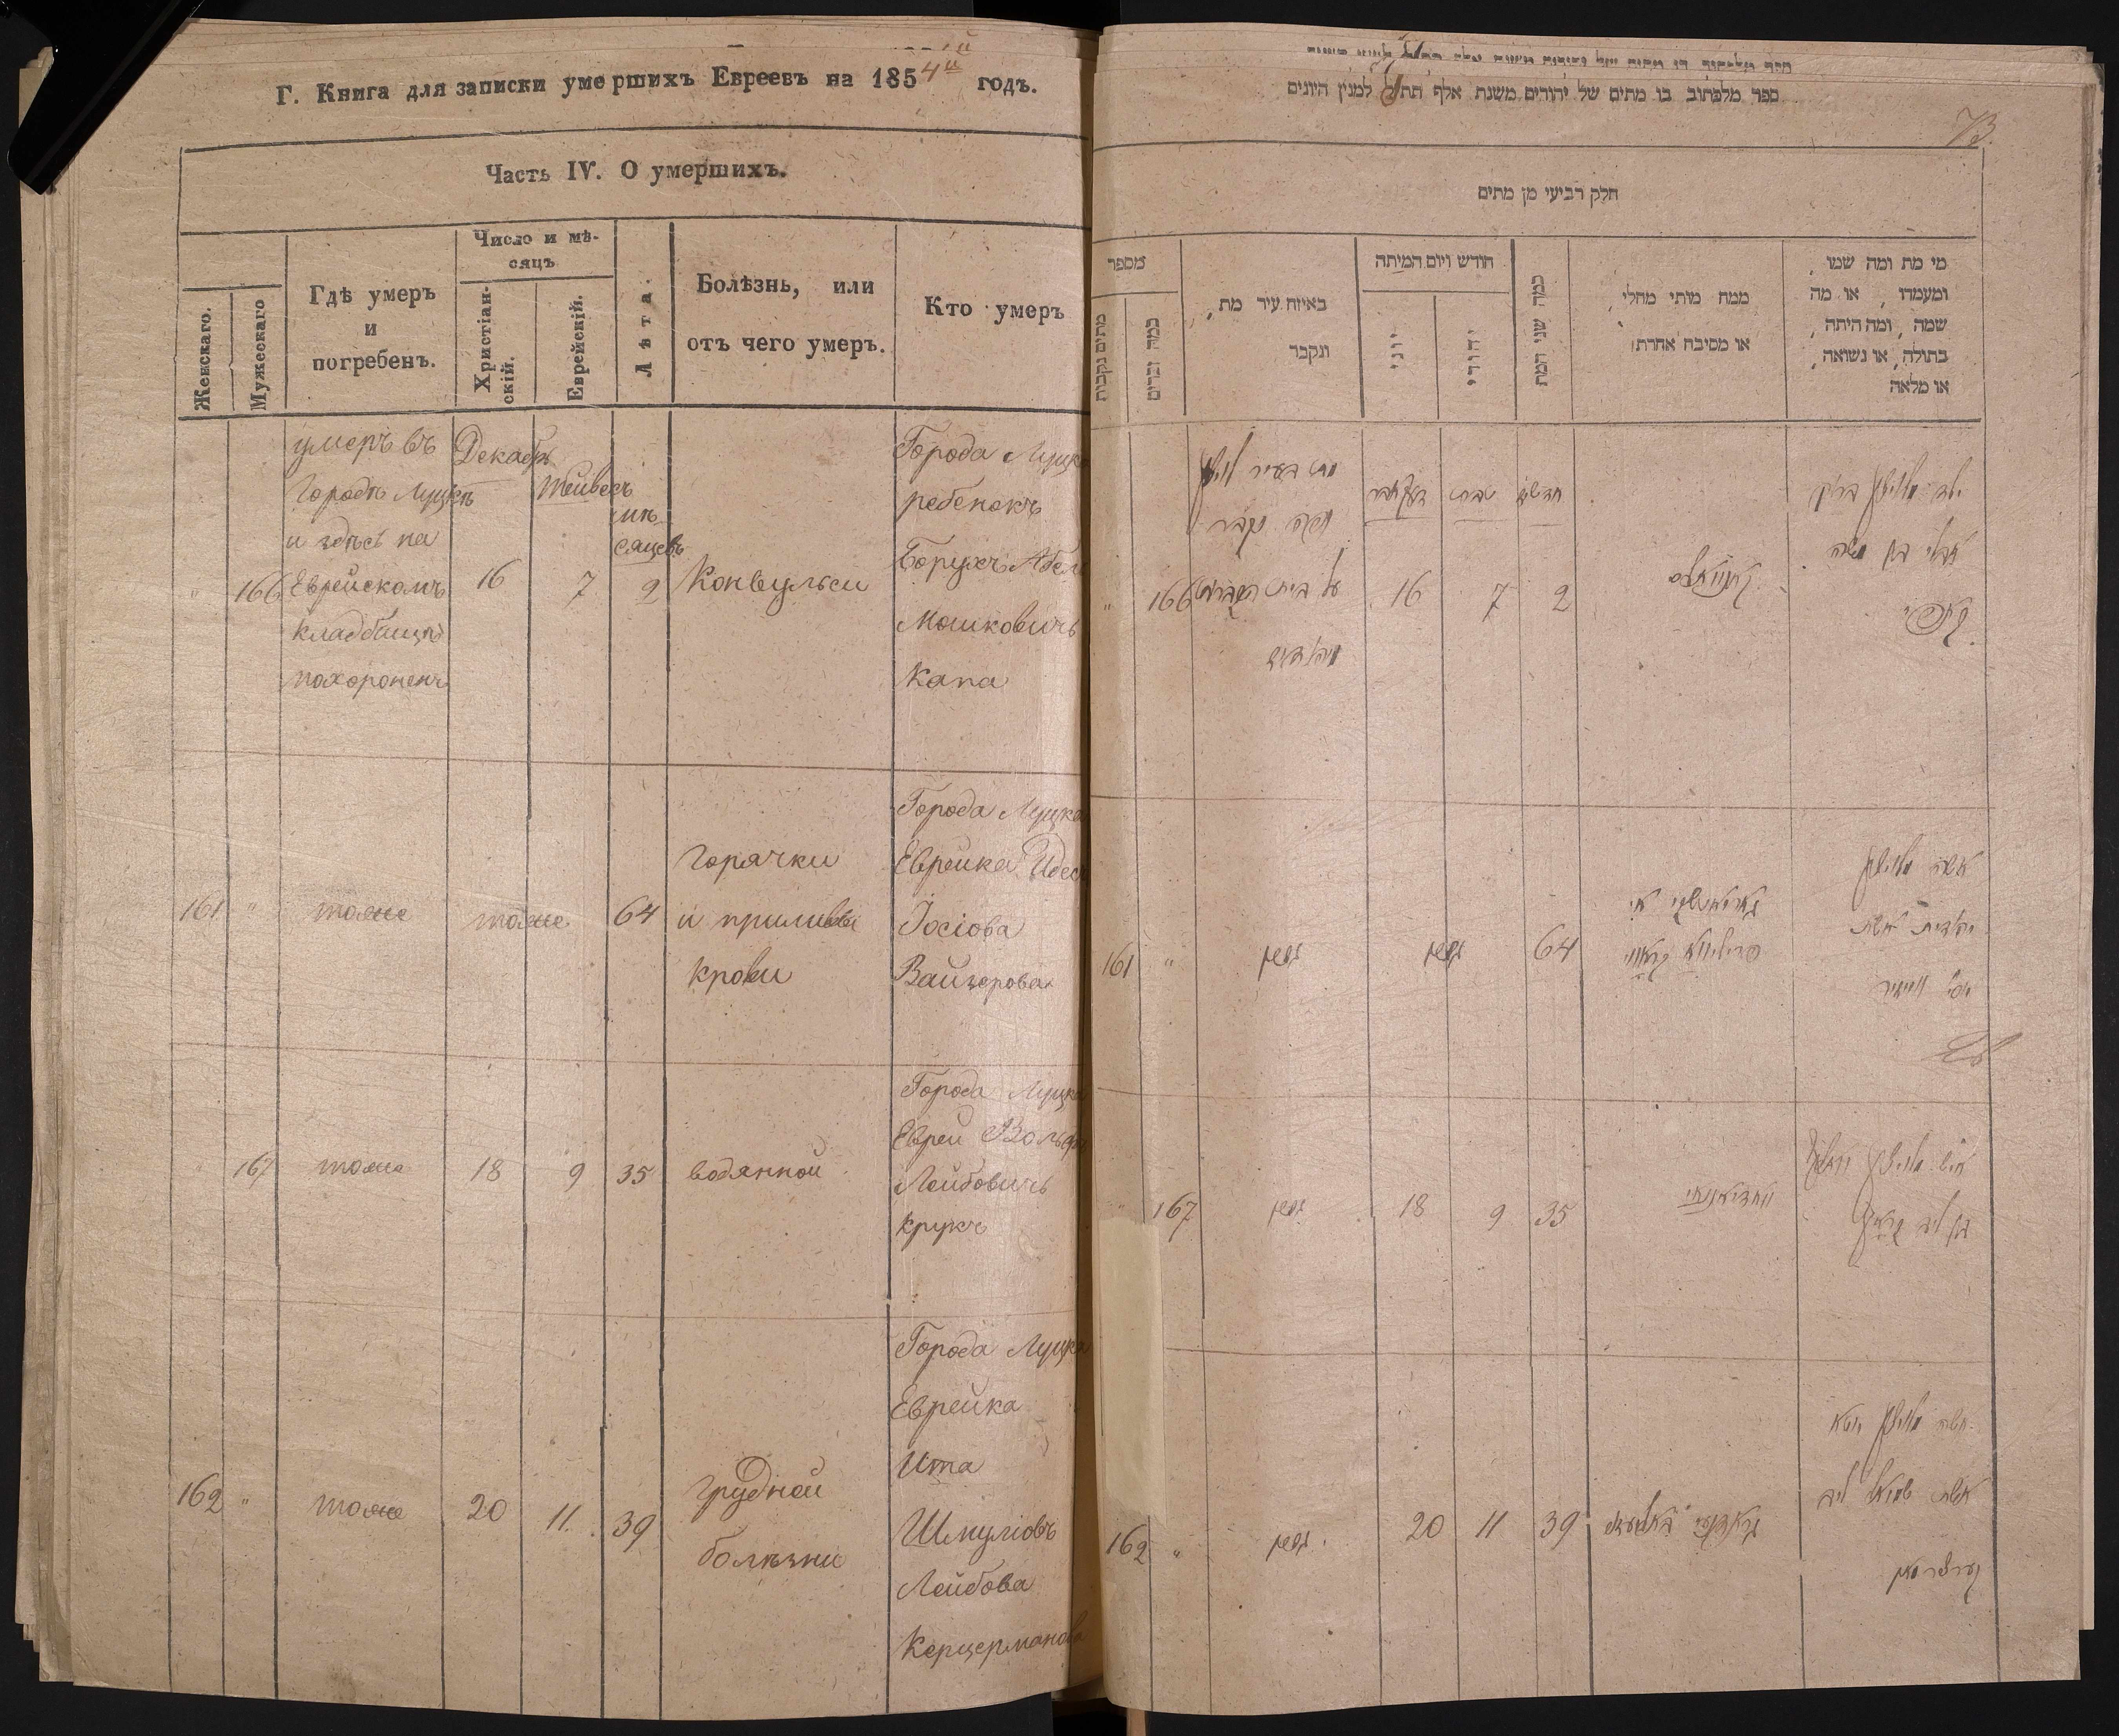 Г. Книга для записки умершихъ Евреевъ на 1854й годъ.
Часть IV. О умершихъ.
Женскаго.
Мужескаго
Гдѣ умеръ
и
погребенъ.
Число и мѣ-
сяцъ
Христіан-
скій.
Еврейскій.
Лѣта.
Болѣзнь, или
отъ чего умеръ.
Кто умеръ
"
166
умеръ въ
Городѣ Луцкѣ
и здѣсь на
Еврейскомъ
кладбищѣ
похороненъ
Декабр
16
Тейвесъ
7
мѣ
сяцевъ
2
Конвульси
Города Луцка
ребенокъ
Борухъ Абел
Мошковичъ
Капа
161
"
тоже
тоже
64
Горячки
и приливы
крови
Города Луцка
Еврейка Идес
Іосіова
Вайзерова
167
тоже
18
9
35
водянной
Города Луцка
Еврей Вольф
Лейбовичъ
Крукъ
162
"
тоже
20
11.
39
грудной
болѣзни
Города Луцка
Еврейка
Ита
Шмуліовъ
Лейбова
Керцерманова
ספר מלכתוב בו מתים של יהודים משנת אלף תת למנין היונים
73.
חלק רביעי מן מתים
מספר
מתים נקבות
כמה זכרים
באיזה עיר מת,
ונקבר
חודש ויום המיתה
יוני
יהודי
כמה שני המת
ממה מותי מחלי,
או מסיבה אחרת
מי מת ומה שמו,
ומעמדו, או מה
שמה, ומה היתה,
בתולה, או נשואה,
או מלאה
"
166
מת בעיר
נקבר
על בית הקברות
דעקאבר
16
טבת
7
חדשים
2
בן משה
161
"
64
אשה
יהודית אשת
יוסי ווייזער
167
18
9
35
איש
בן ליב קרוק
162
"
20
11
39
אשה
אשת שמואל ליב
קערצרמאן